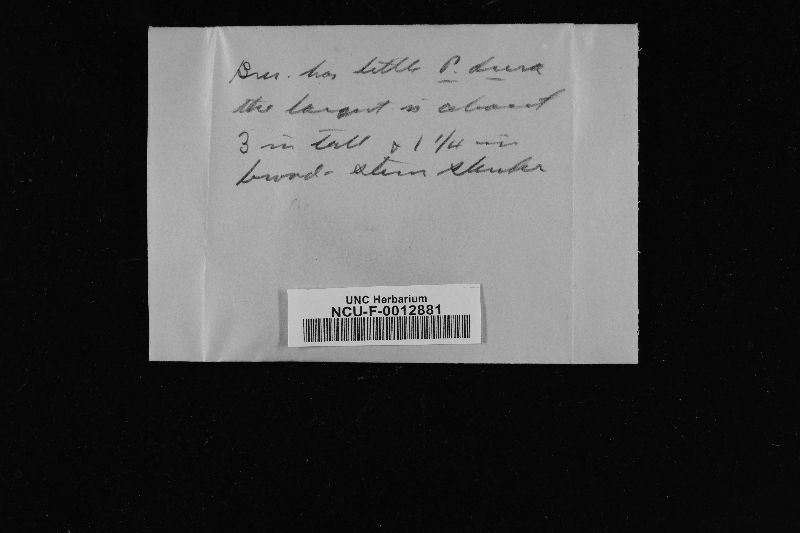 Bres. has little P. dura
the largest is about
3 in tall & 1 1/4 in
broad - stem slender
UNC Herbarium
NCU-F-0012881